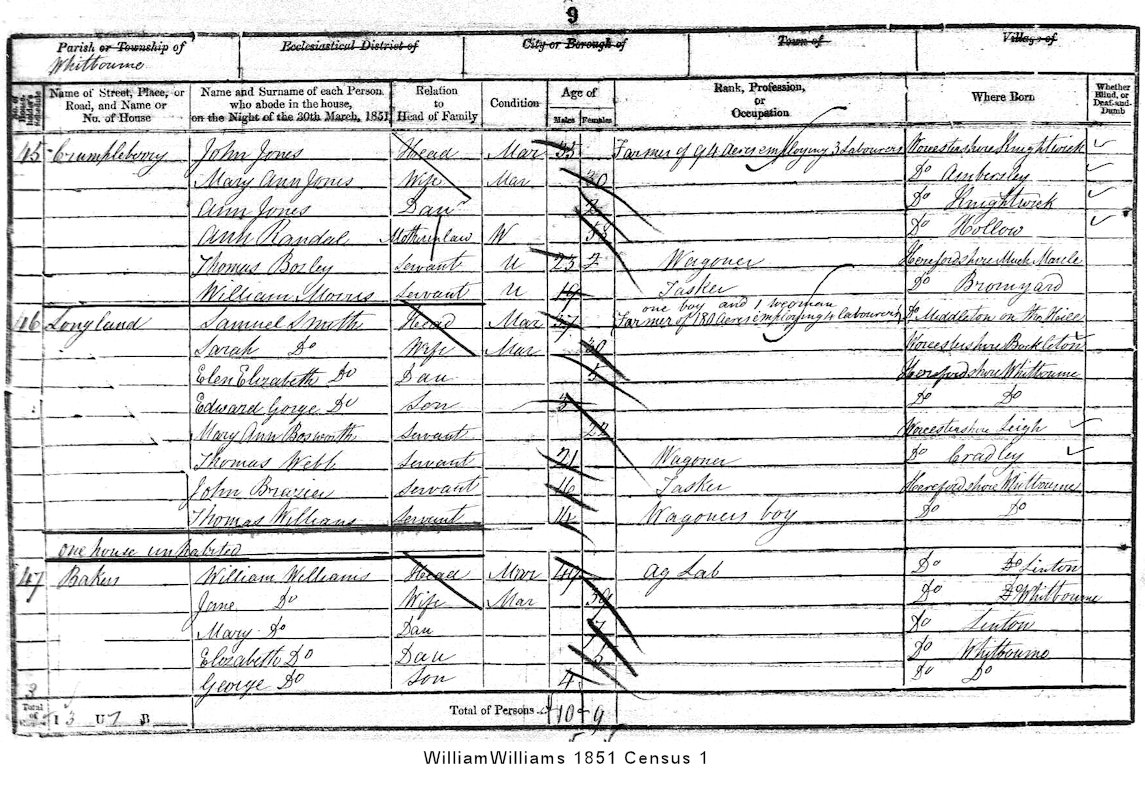 9
Parish or Township of Ecclesiastical District of City or Borough of Town of Village of
Whitbourne
No. of Householder's Schedule Name of Street, Place, or Road, and Name or No. of House Name and Surname of each Person who abode in the house, on the Night of the 30th March, 1851 Relation to Head of Family Condition Age of Males Females Rank, Profession, or Occupation Where Born Whether Blind, or Deaf-and-Dumb
45 Crumplebury John Jones Head Mar 33 Farmer of 94 Acres employing 3 Labourers Worcestershire Knightwick
Mary Ann Jones Wife Mar 30 Do Ambersley
Ann Jones Daur 2 Do Knightwick
Ann Randal Mother in law W 58 Do Hollow
Thomas Bosley Servant U 23 Wagoner Herefordshire Much Marcle
William Morris Servant U 19 Tasker Do Bromyard
one boy and 1 weoman
46 Longland Samuel Smith Head Mar 37 Farmer of 180 Acres employing 4 labourers Do Middleton on the Hill
Sarah Do Wife Mar 30 Worcestershire Bockleton
Elen Elizabeth Do Dau 5 Herefordshire Whitbourne
Edward Gorge Do Son 3 Do Do
Mary Ann Bosworth Servant 22 Worcestershire Leigh
Thomas Webb Servant 21 Wagoner Do Cradley
John Brazier Servant 16 Tasker Herefordshire Whitbourne
Thomas Williams Servant 14 Wagoners boy Do Do
one house unhabited
47 Bakers William Williams Head Mar 47 Ag Lab Do Linton
Jane Do Wife Mar 39 Do Whitbourne
Mary Do Dau 7 Do Linton
Elizabeth Do Dau 5 Do Whitbourne
George Do Son 4 Do Do
3
Total of I 3 U 1 B Total of Persons 10 9
WilliamWilliams 1851 Census 1